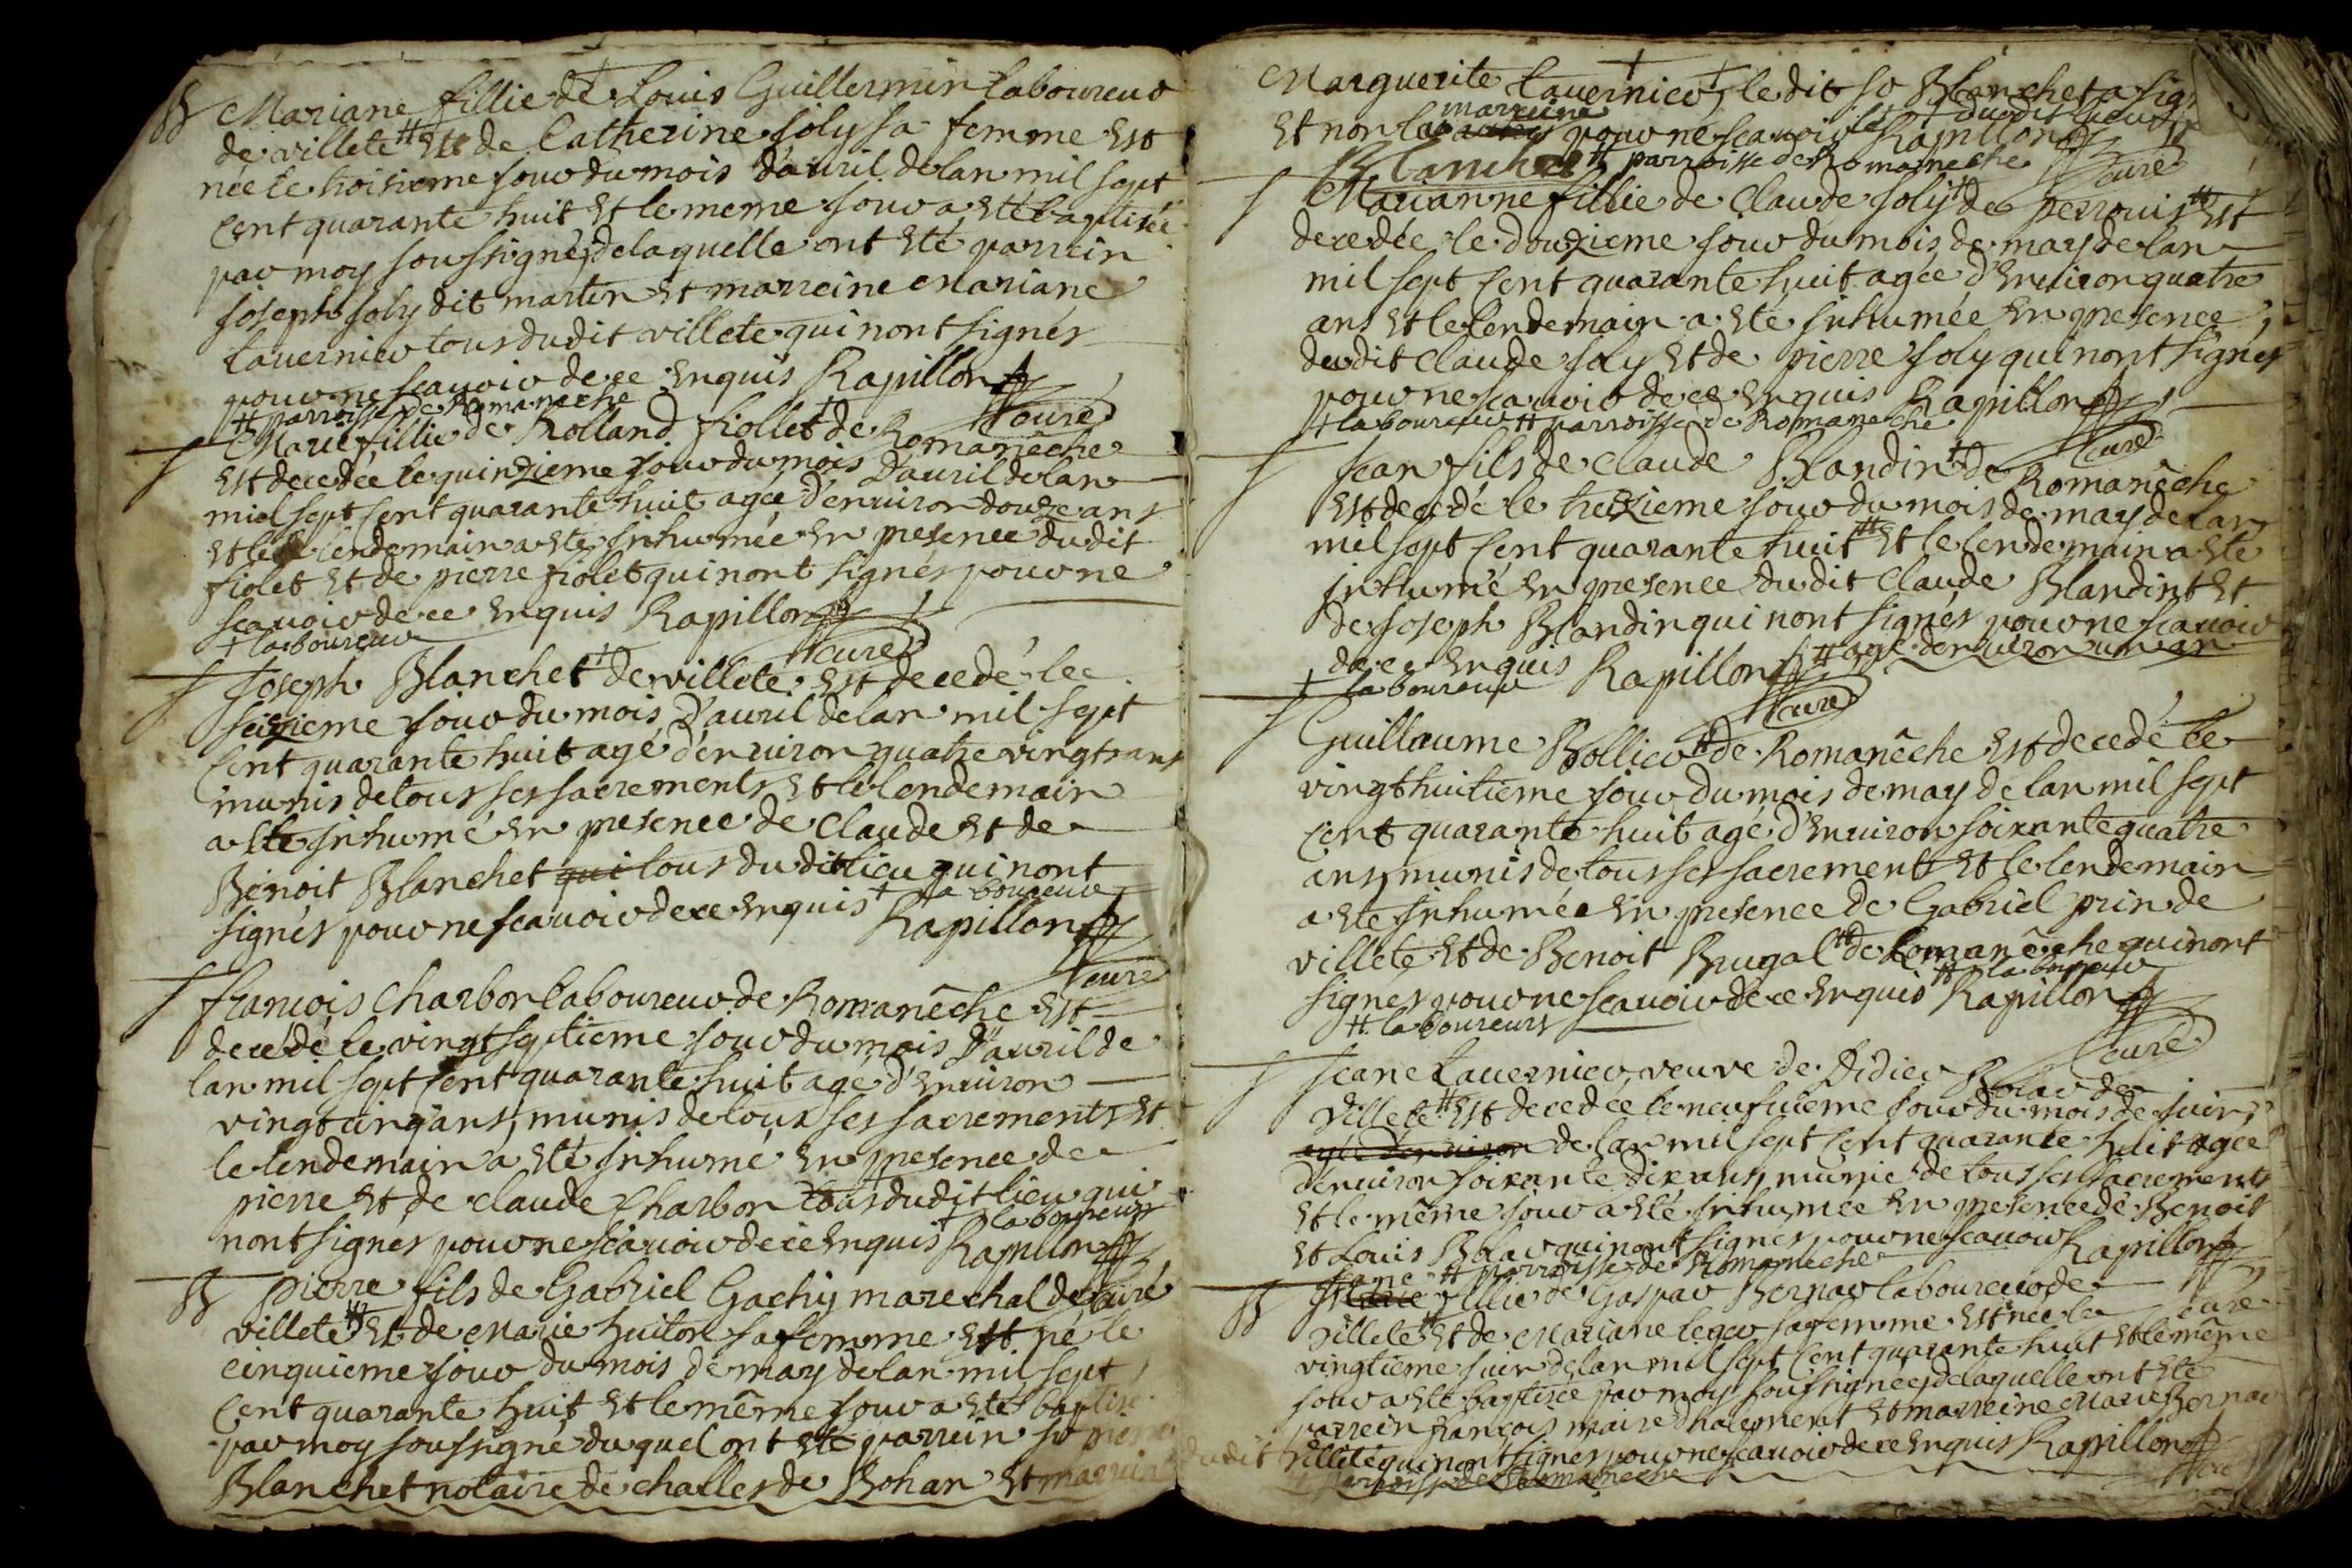 B Mariane fillie de Louis Guillermin laboureur
de villete # Et de Catherine joly sa femme Est
née le troisieme jour du mois d'auril de lan mil sept
Cent quarante huit Et le meme jour a Eté baptisée
par moy soussigné, de laquelle ont Eté parrein
joseph joly dit martin Et marreine Mariane
tauernier tous dudit villete qui nont signés
pour ne scauoir de ce Enquis Rapillon
# parroisse de Romaneche curé
S Marie fillie de Rolland fiollet † de Romanêche
Est decedée le quinzieme jour du mois D'auril de lan
mil sept Cent quarante huit agée d'enuiron douze ans
Et le lendemain a Eté Inhumée En presence dudit
fiolet Et de pierre fiolet qui nont signés pour ne
scauoir de ce Enquis Rapillon
† laboureur curé
S Joseph Blanchet † de villete Est decedé le
seizieme jour du mois D'auril de lan mil sept
Cent quarante huit agé d'enuiron quatre vingts ans
munis de tous ses sacrements Et le lendemain
a Eté Inhumé En presence de Claude Et de
Benoit Blanchet qui tous dudit lieu qui nont
signés pour ne scauoir de ce Enquis † laboureur
Rapillon
curé
S francois Charbon laboureur de Romanêche Est
decedé le vingt septieme jour du mois D'auril de
lan mil sept Cent quarante huit agé d'Enuiron
vingt cinq ans, munis de tous ses sacrements Et
le lendemain a Eté Inhumé En presence de
pierre Et de claude Charbon tous dudit lieu qui
nont signés pour ne scauoir de ce Enquis † laboureurs
Rapillon
curé
B Pierre fils de Gabriel Gachy marechal de
villete # Et de Marie huiton sa femme Est né le
cinquieme jour du mois de may de lan mil sept
Cent quarante huit Et le même jour a Eté baptisé
par moy soussigné duquel ont Eté parrein sr pierre
Blanchet notaire de challes de Bohan Et marreine
Marguerite tauernier, le dit sr Blanchet a
Et non la marreine pour ne scauoir † dudit lieu
Rapillon
Blanchet # parroisse de Romaneche curé
S Marianne fillie de Claude joly † de perrouis # Est
decedée le Douzieme jour du mois de may de lan
mil sept Cent quarante huit agée d'Enuiron quatre
ans Et le lendemain a Eté Inhumée En presence
dudit claude joly Et de pierre joly qui nont signés
pour ne scauoir de ce Enquis Rapillon
† laboureur # parroisse de Romaneche curé
S Jean fils de claude Blandin † de Romanêche
Est decedé le treizieme jour du mois de may de lan
mil sept Cent quarante huit # Et le lendemain a Eté
Inhumé En presence dudit claude Blandin Et
de joseph Blandin qui nont signés pour ne scauoir
de ce Enquis Rapillon # agé d'enuiron un an
† laboureur curé
S Guillaume Bollier # de Romanêche Est decedé le
vingt huitieme jour du mois de may de lan mil sept
Cent quarante huit agé d'Enuiron soixante quatre
ans, munis de tous ses sacrements Et le lendemain
a Eté Inhumée En presence de Gabriel prin de
villete Et de Benoit Brugal # de Romanêche qui nont
signés pour ne scauoir de ce Enquis # laboureur
Rapillon
# laboureurs curé
S Jeane tauernier, veuve de Didier Bolar de
Villete # Est decedée le neufuieme jour du mois de juin,
agée d'enuiron de lan mil sept Cent quarante huit agée
d'enuiron soixante dix ans, munie de tous ses sacrements
Et le même jour a Eté Inhumée En presence de Benoit
Et Louis Bolar qui nont signés pour ne scauoir Rapillon
# parroisse de Romaneche curé
B Jeane Marie fillie de Gaspar Bernar laboureur de
Villete # Et de Mariane leger sa femme Est née le
vingtieme juin de lan mil sept Cent quarante huit Et le même
jour a Eté baptisée par moy soussignée, de laquelle ont Eté
parrein francois maire Et marreine Marie Bernar
dudit Villete qui nont signés pour ne scauoir de ce Enquis Rapillon
# parroisse de Romaneche curé